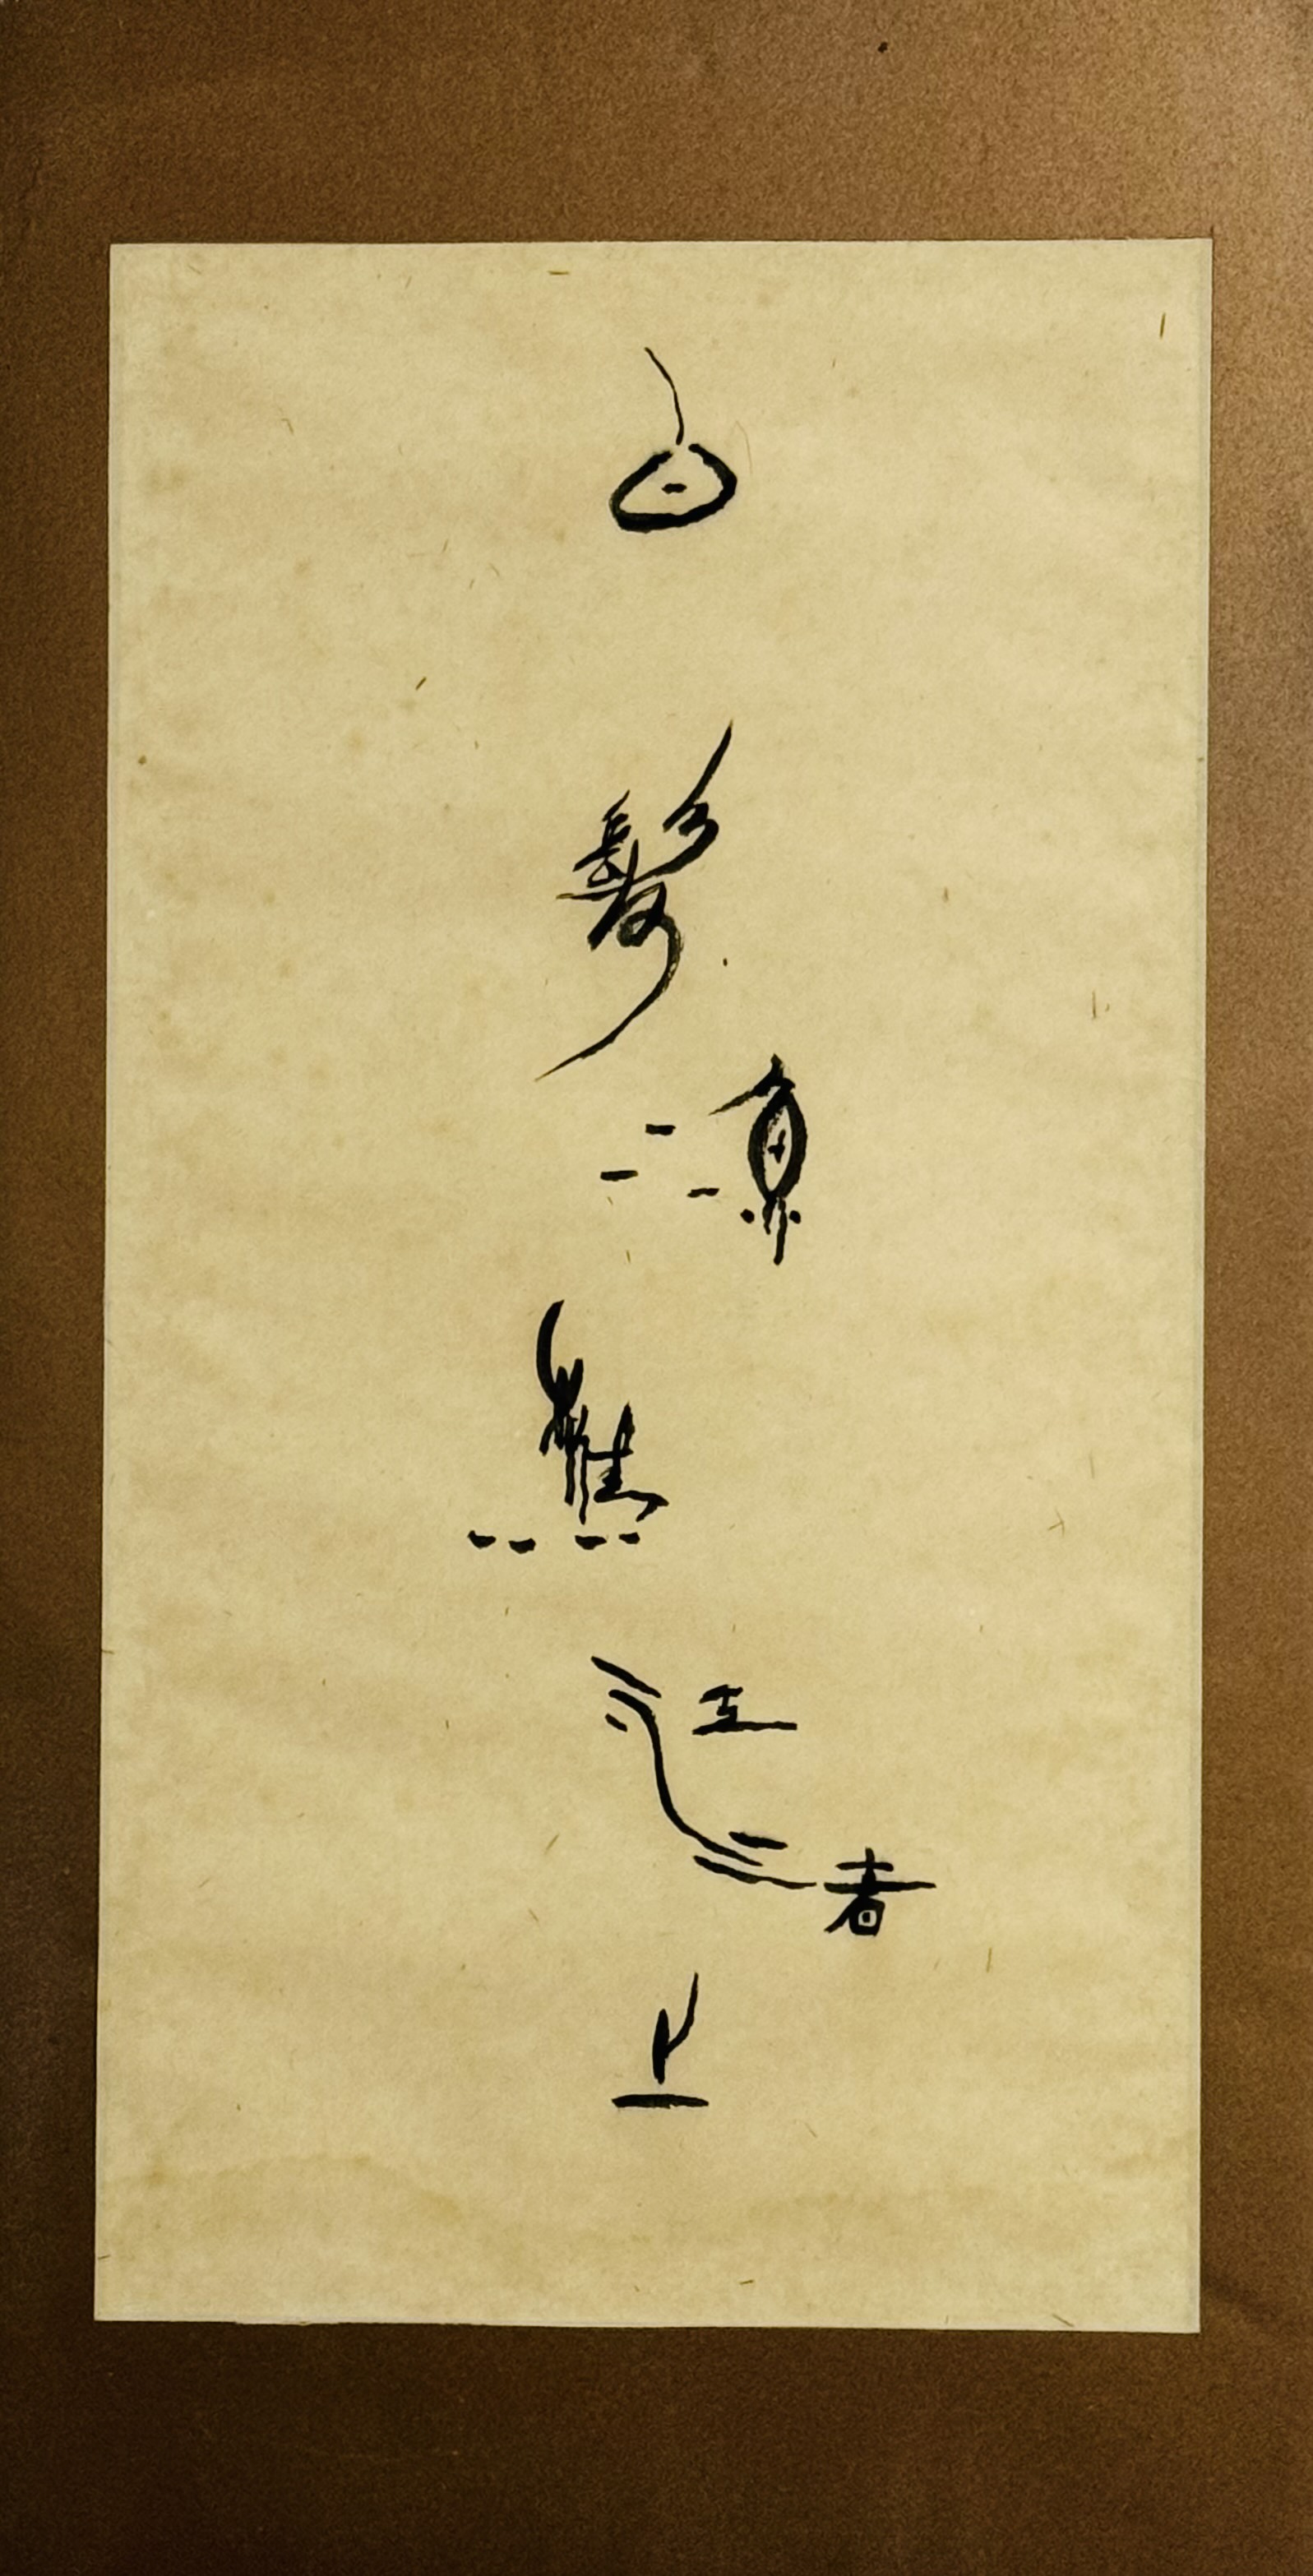 白髮漁樵江渚上